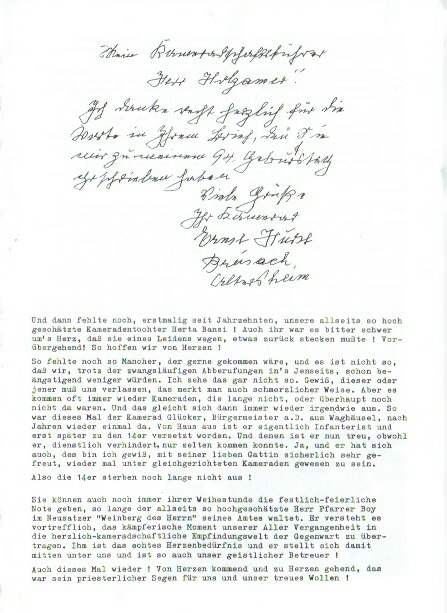 Mein Kameradschaftsführer
Herr Holzamer!
Ich danke recht herzlich für die
Worte in Ihrem Brief, den Sie
mir zu meinem 94. Geburtstag
geschrieben haben
Viele Grüße
Ihr Kamerad
Ernst
Breisach,
Altersheim
Und dann fehlte noch, erstmalig seit Jahrzehnten, unsere allseits so hoch
geschätzte Kameradentochter Herta Bansi ! Auch ihr war es bitter schwer
um's Herz, daß sie eines Leidens wegen, etwas zurück stecken mußte ! Vor-
übergehend! So hoffen wir von Herzen !
So fehlte noch so Mancher, der gerne gekommen wäre, und es ist nicht so,
daß wir, trotz der zwangsläufigen Abberufungen in's Jenseits, schon be-
ängstigend weniger würden. Ich sehe das gar nicht so. Gewiß, dieser oder
jener muß uns verlassen, das merkt man auch schmerzlicher Weise. Aber es
kommen oft immer wieder Kameraden, die lange nicht, oder überhaupt noch
nicht da waren. Und das gleicht sich dann immer wieder irgendwie aus. So
war dieses Mal der Kamerad Glücker, Bürgermeister a.D. aus Waghäusel, nach
Jahren wieder einmal da. Von Haus aus ist er eigentlich Infanterist und
erst später zu den 14er versetzt worden. Und denen ist er nun treu, obwohl
er, dienstlich verhindert,nur selten kommen konnte. Ja, und er hat sich
auch, des bin ich gewiß, mit seiner lieben Gattin sicherlich sehr ge-
freut, wieder mal unter gleichgerichteten Kameraden gewesen zu sein.
Also die 14er sterben noch lange nicht aus !
Sie können auch noch immer ihrer Weihestunde die festlich-feierliche
Note geben, so lange der allseits so hochgeschätzte Herr Pfarrer Boy
im Neusatzer "Weinberg des Herrn" seines Amtes waltet. Er versteht es
vortrefflich, das kämpferische Moment unserer Aller Vergangenheit in
die herzlich-kameradschaftliche Empfindungswelt der Gegenwart zu über-
tragen. Ihm ist das echtes Herzenbedürfnis und er stellt sich damit
mitten unter uns und ist so auch unser geistlicher Betreuer !
Auch dieses Mal wieder ! Von Herzen kommend und zu Herzen gehend, das
war sein priesterlicher Segen für uns und unser treues Wollen !